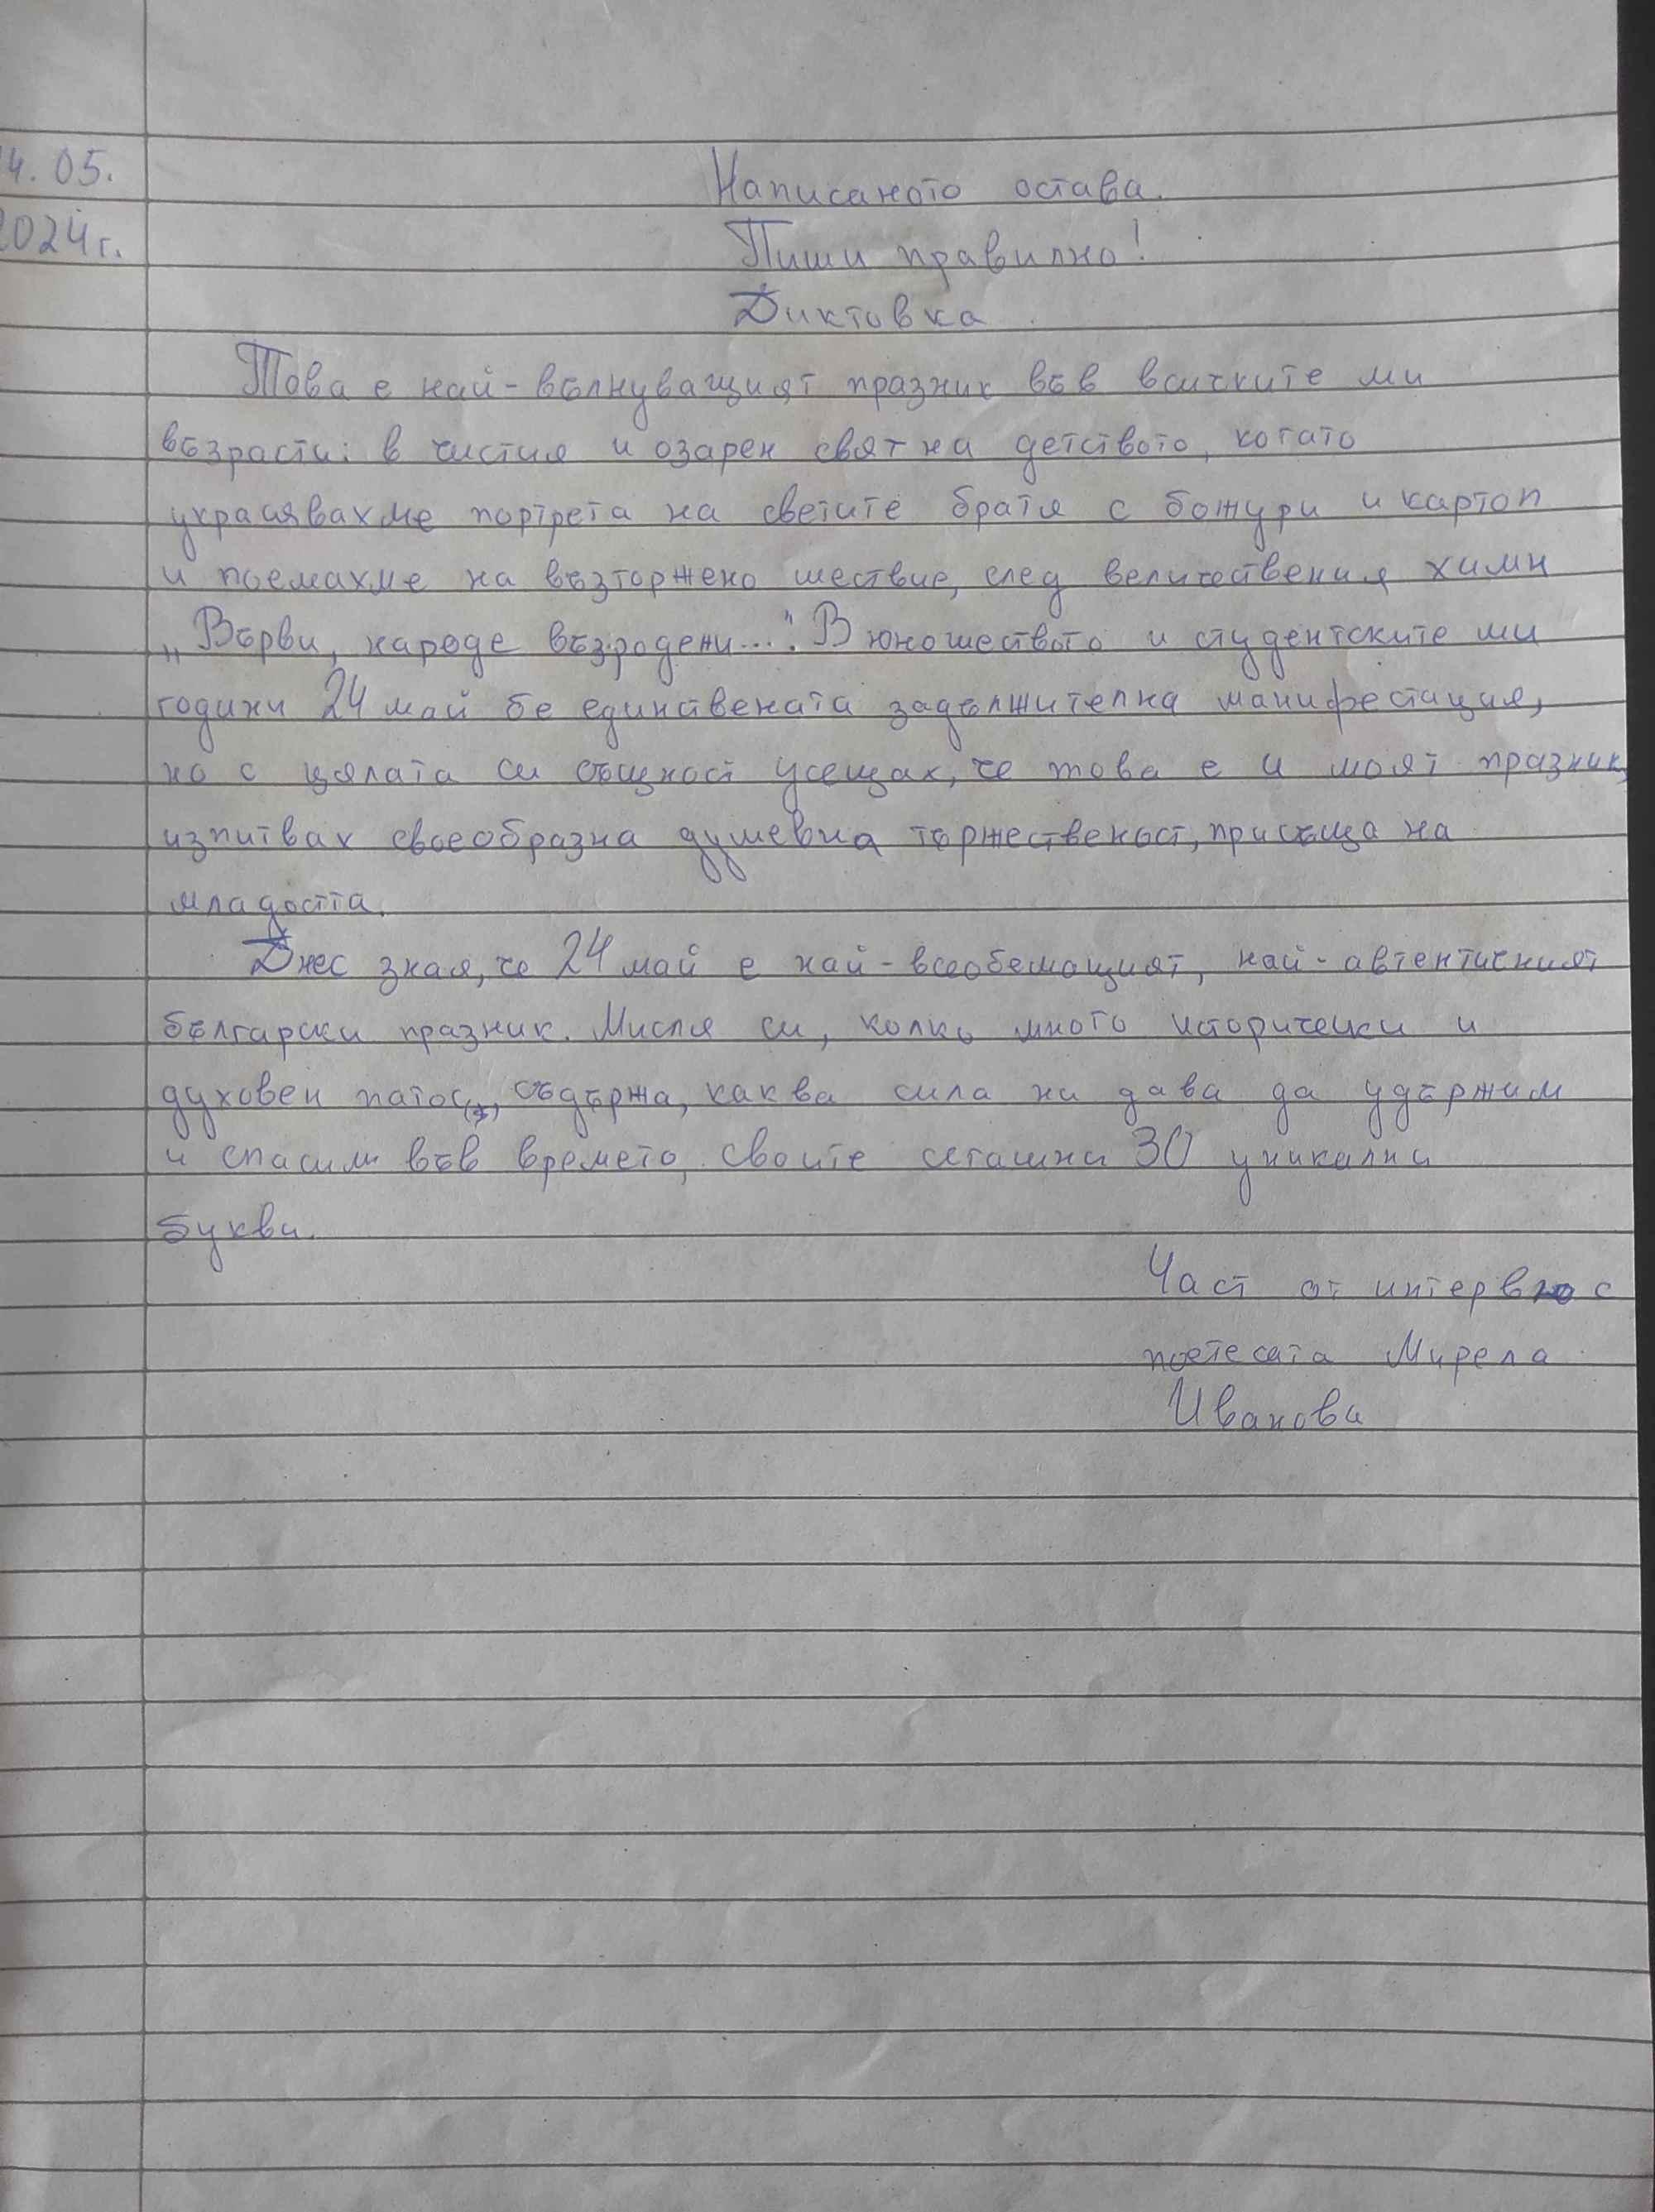 4. 05.
2024г.
Написаното остава.
Пиши правилно!
Диктовка
Това е най-вълнуващият празник във всичките ми
възрасти: в чистия и озарен свят на детството, когато
украсявахме портрета на светите братя с божури и картоп
и поемахме на възторжено шествие, след величествения химн
„Върви, народе възродени...". В юношеството и студентските ми
години 24 май бе единствената задължителна манифестация,
но с цялата си същност усещах, че това е и моят празник,
изпитвах своеобразна душевна тържественост, присъща на
младостта.
Днес зная, че 24 май е най-всеобемащият, най-автентичният
български празник. Мисля си, колко много исторически и
духовен патос, съдържа, каква сила ни дава да удържим
и спасим във времето, своите сегашни 30 уникални
букви.
Част от интервю с
поетесата Мирела
Иванова